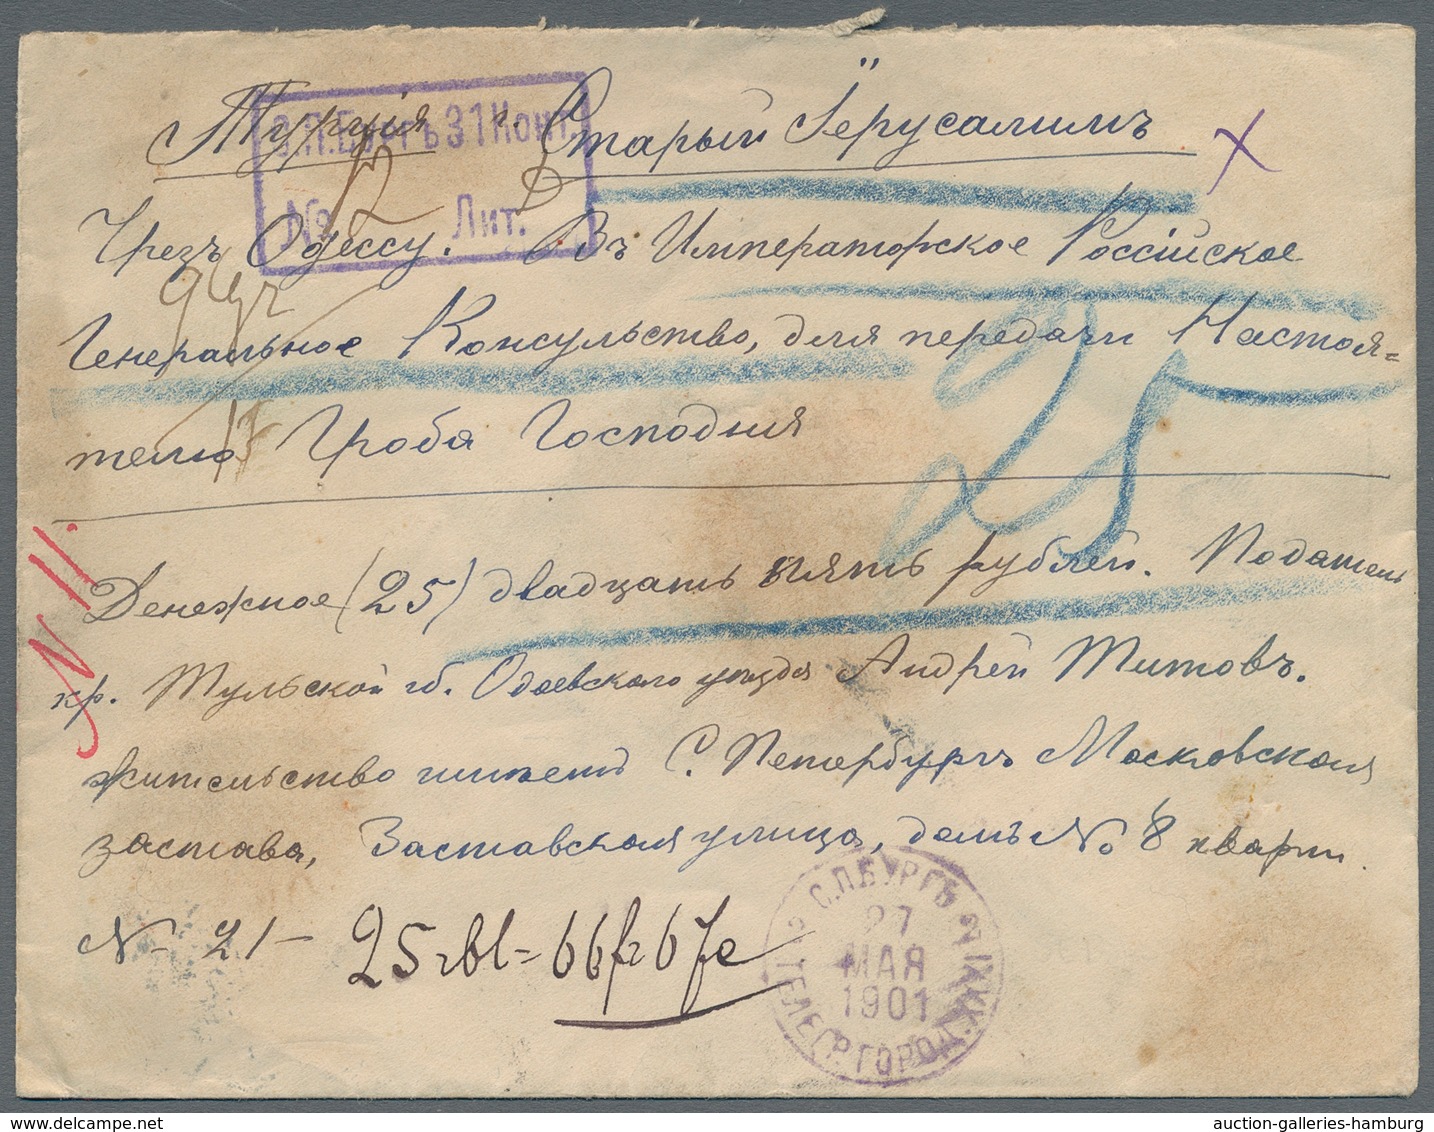 Турція г. Старый Іерусалимъ
С.П.Бургъ 31 Конт.
№ 12 Лит. D
Чрезъ Одессу. Въ Императорское Россійское
Генеральное Консульство, для передачи Настоя=
телю Гроба Господня
25
N 11.
Денежное (25) двадцать пять рублей. Податель
кр. Тульской гб. Одоевского уезда Андрей Титовъ.
жительство С. Петербургъ Московская
застава, Заставская улица, домъ № 8 кварт.
N- 21 -
25 rbl = 66 fr 67 c
С.П.БУРГЪ 31
27
МАЯ
1901
ТЕЛЕГР. ГОРОД.
auction-galleries-hamburg
www.delcampe.net